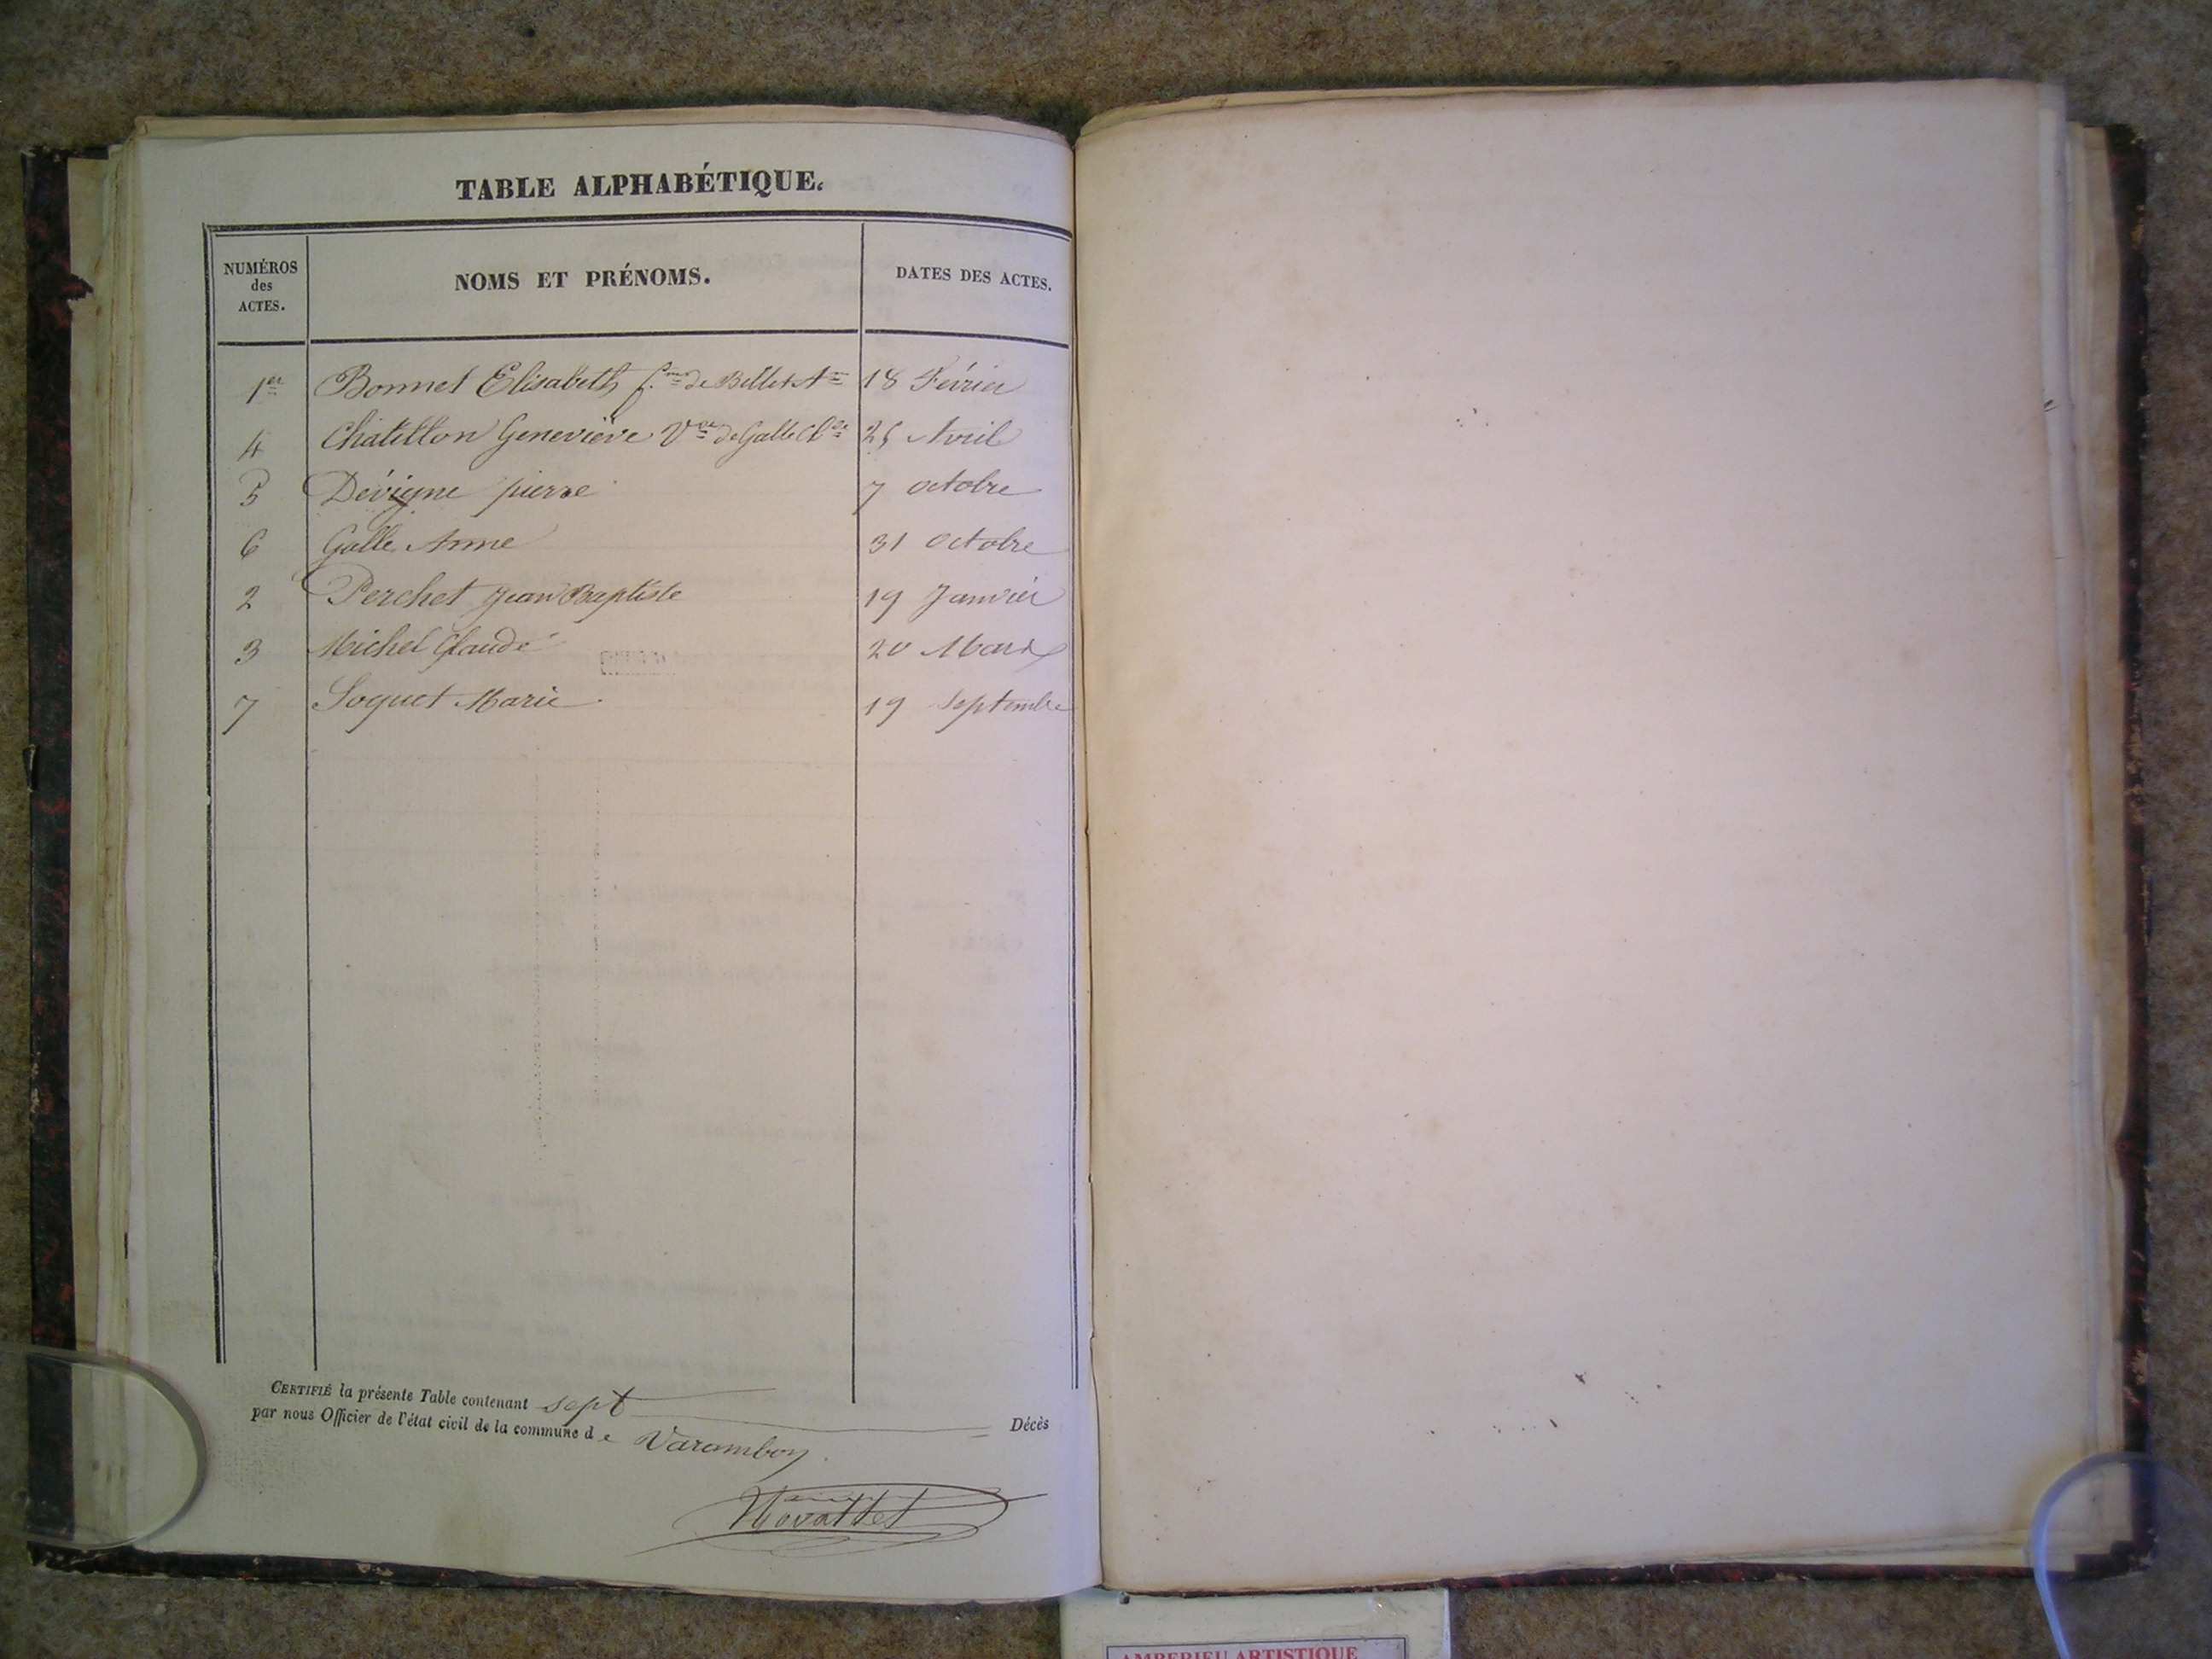 TABLE ALPHABÉTIQUE.
NUMÉROS des ACTES.
NOMS ET PRÉNOMS.
DATES DES ACTES.
1er Bonnet Elisabeth fme de Billet Ane 18 Février
4 Chatillon Geneviève Vve de Galle Cde 25 Avril
5 Dévigne pierre 7 octobre
6 Galle Anne 31 octobre
2 Perchet Jean Baptiste 19 Janvier
3 Michel Claude 20 Mars
7 Soquet Marie 19 septembre
CERTIFIÉ la présente Table contenant sept Décès
par nous Officier de l'état civil de la commune de Varambon
AMBERIEU ARTISTIQUE